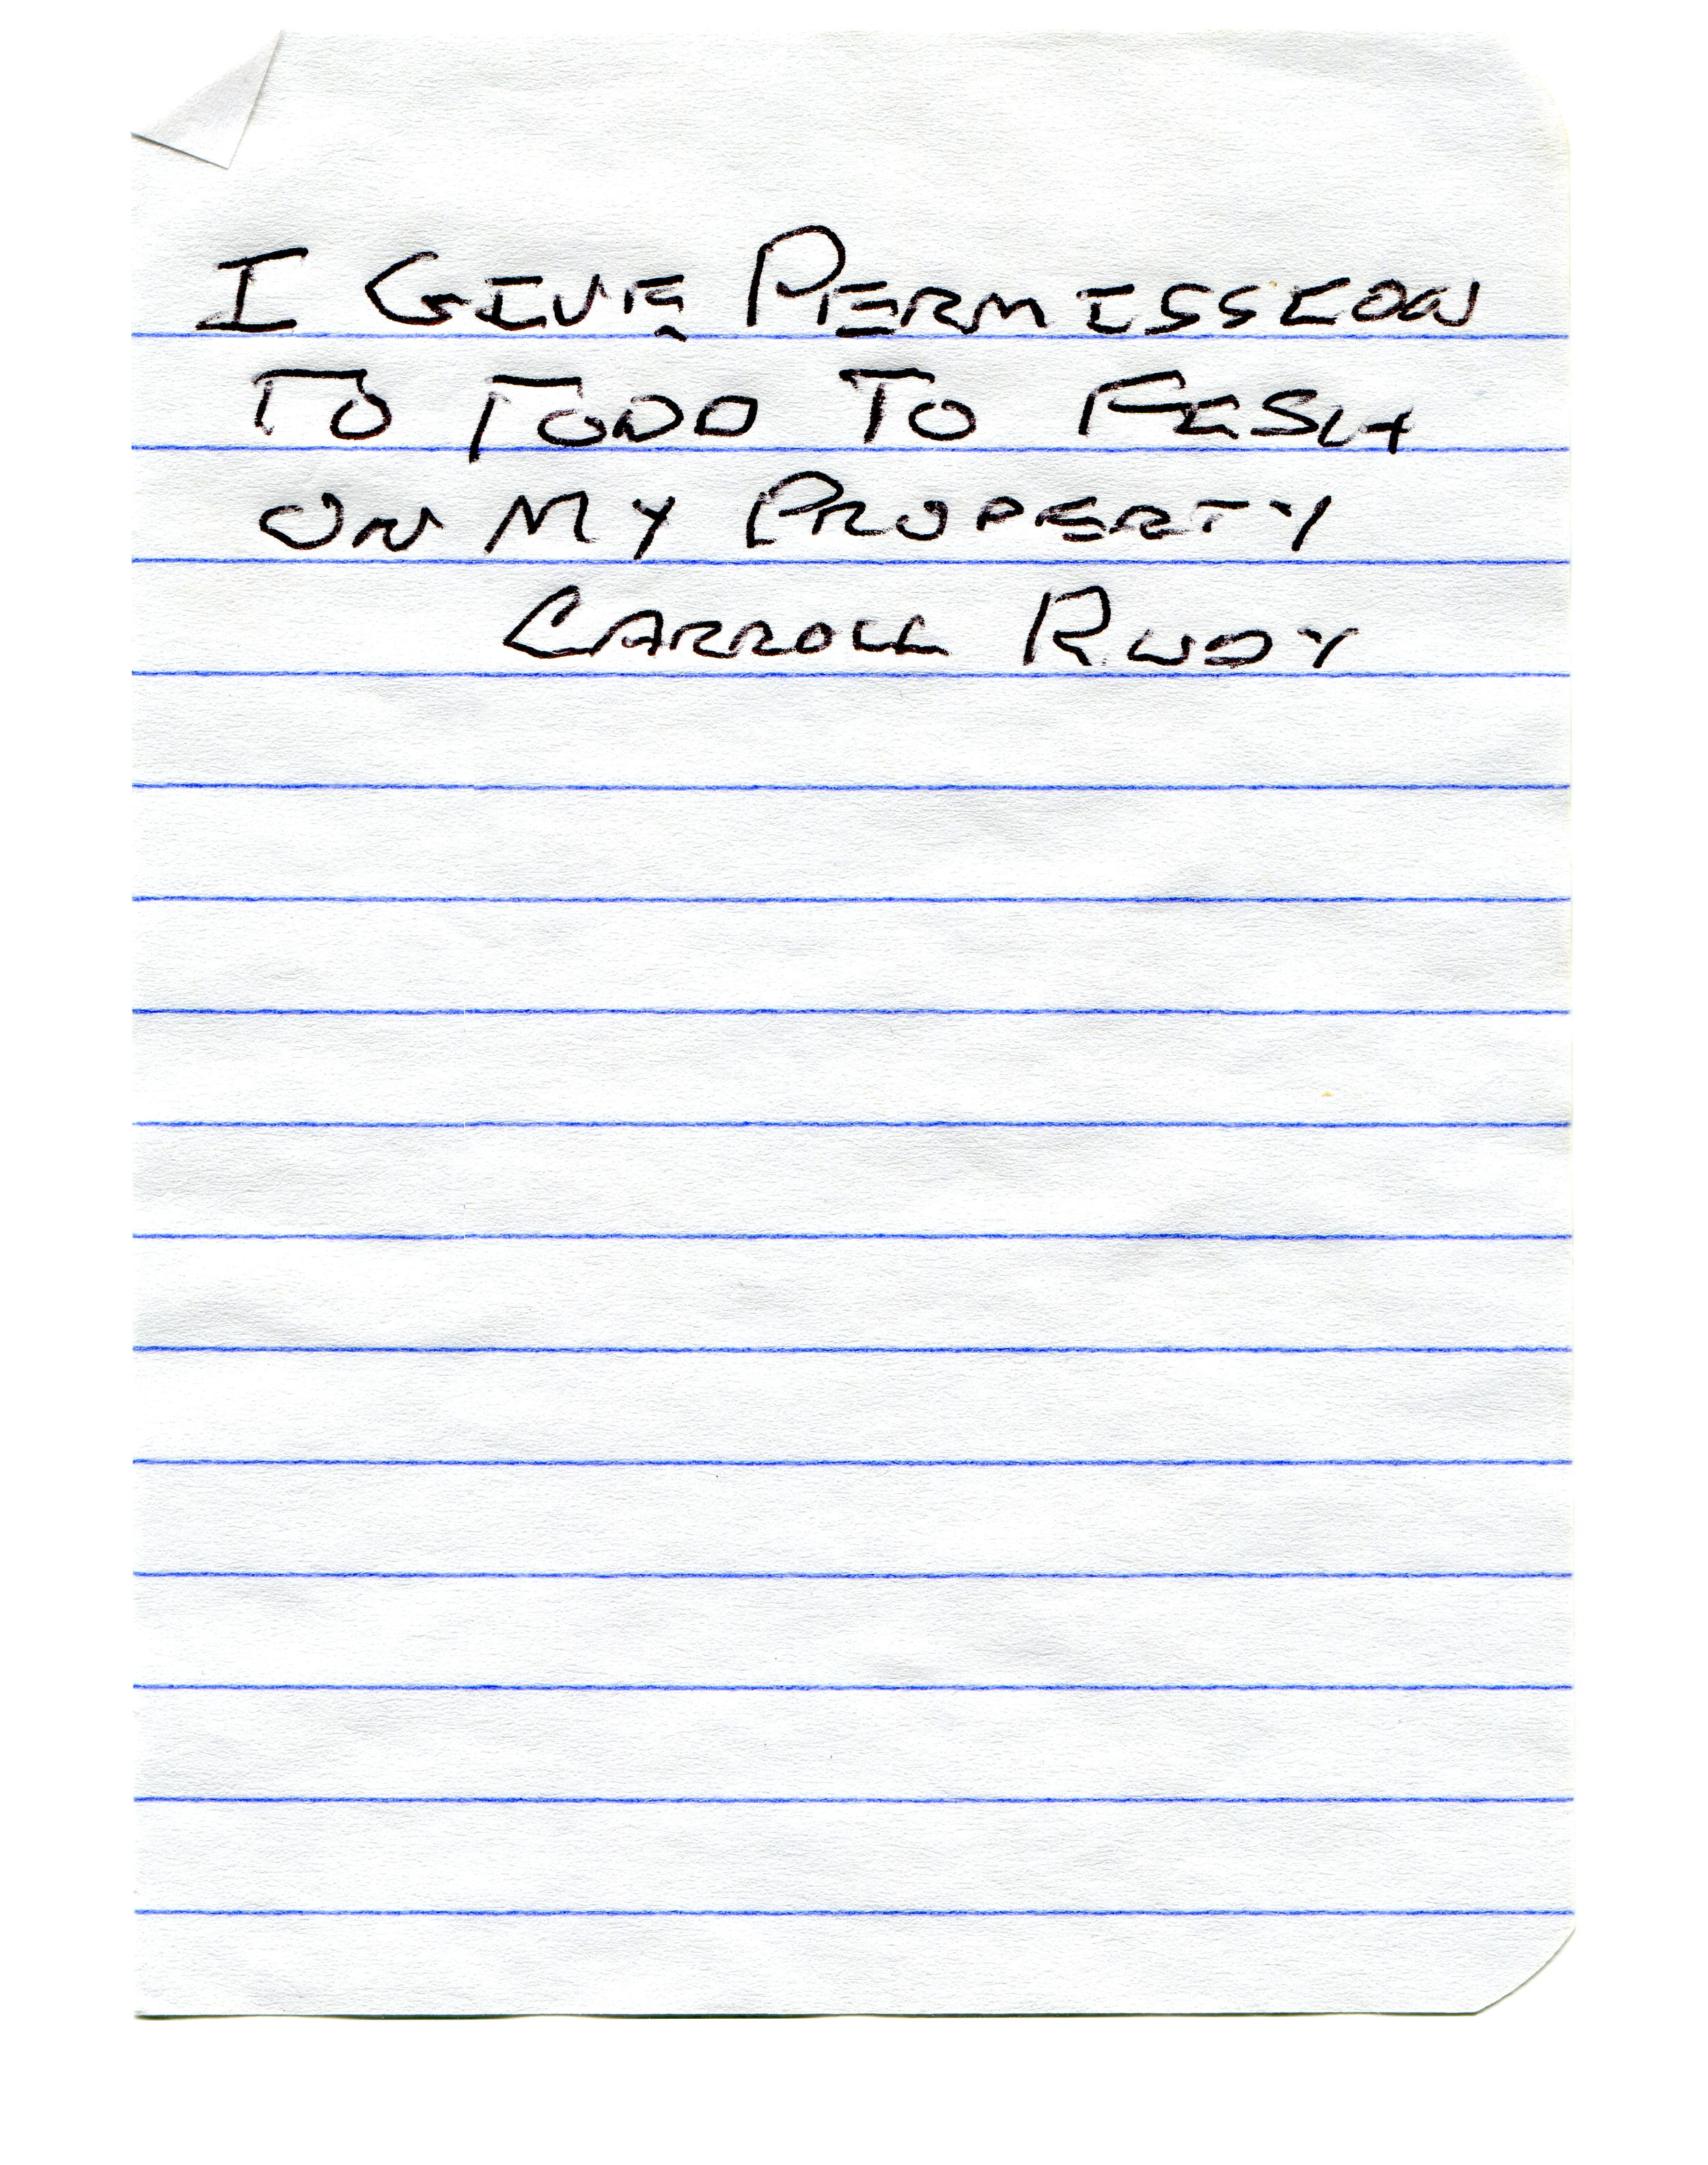 I GIVE PERMISSION
TO TODD TO FISH
ON MY PROPERTY
CARROLL RUDY